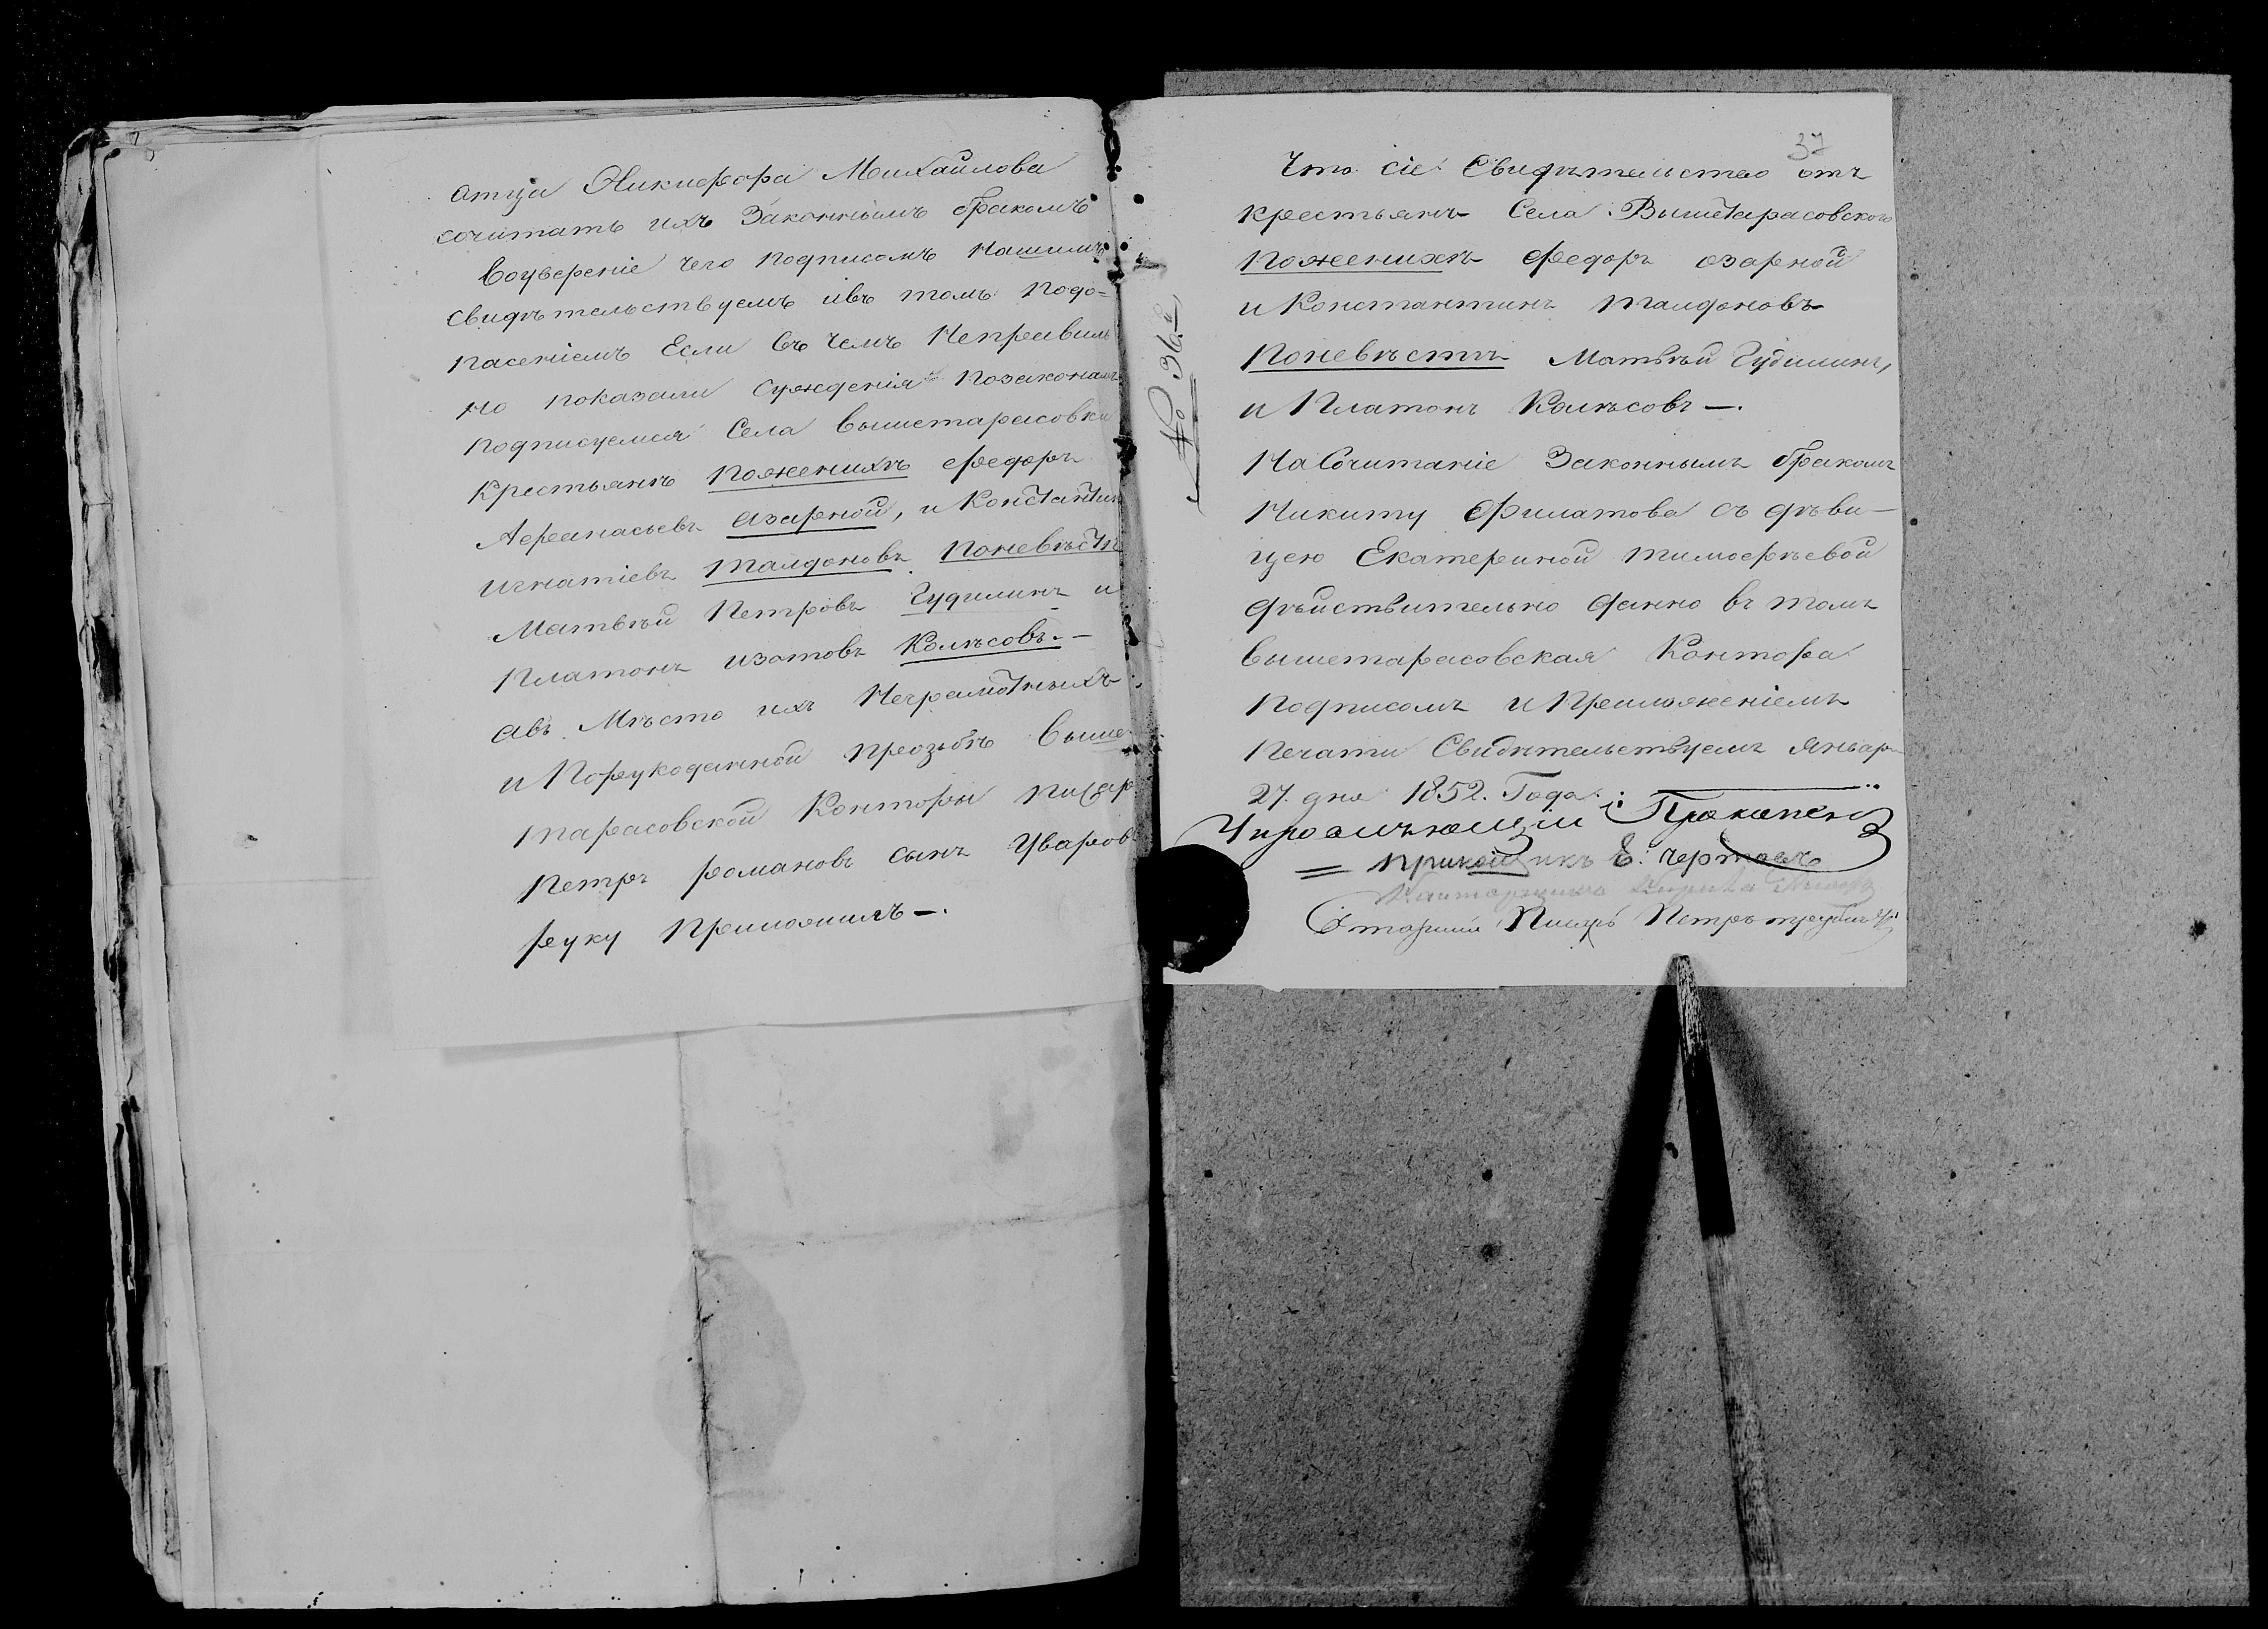 отца Никифора Михайлова
сочитать ихъ Законнымъ бракомъ
воуверение чего подписомъ Нашимъ
свидѣтельствуемъ ивъ томъ подо=
пасениемъ Если въ чемъ Неправиль
но показали суждения позаконамъ
подписуемся Села вышетарасовки
Крестьянъ поженихѣ Федоръ
Афанасьевъ азарной, и Константинъ
игнатиевъ талдоновъ поневѣстѣ
Матвѣй Петровъ Гудилинъ и
Платонъ изотовъ Колѣсовъ.—
Авъ Мѣсто ихъ Неграмотныхъ
и Порукоданной прозьбѣ выше
тарасовской Конторы писарь
Петръ романовъ сынъ Уваровъ
руку Приложилъ—.
37
Что сіе Свидѣтельство отъ
крестьянъ Села Вышетарасовского
поженихѣ Федоръ озарной
и Константинъ талдоновъ
Поневѣстѣ Матвѣй Гудилинъ,
и Платонъ Колѣсовъ—.
На Сочитаніе Законнымъ бракомъ
Никиту Филатова съ дѣви—
цею Екатериной тимофѣевой
дѣйствительно данно въ томъ
вышетарасовская Контора
подписомъ и Приложеніемъ
печати Свидѣтельствуемъ январ
27. дня 1852. Года.
Управляющій
прикащикъ Е. Чертовъ
Старший Писарь Петръ
№ 36.й